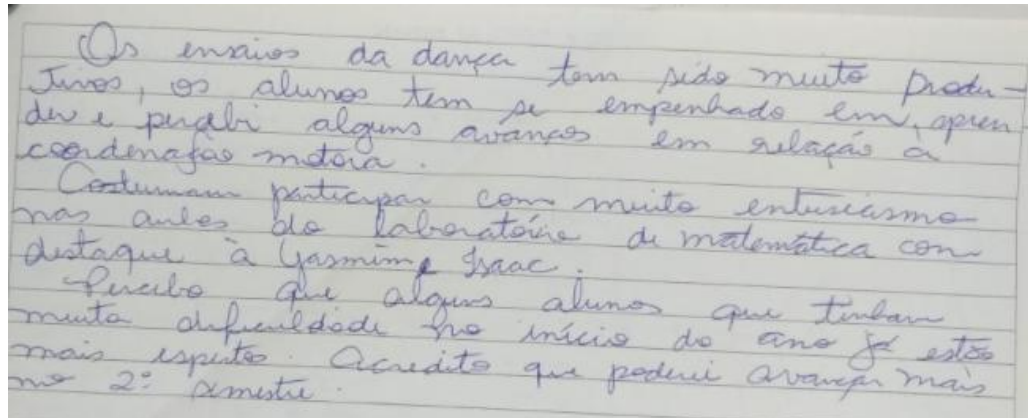 Os ensaios da dança tem sido muito produ-
tivos, os alunos tem se empenhado em, apren
der e percebi alguns avanços em relação a
coordenação motora.
Costumam participar com muito entusiasmo
nas aulas do laboratório de matemática com
destaque à Yasmim e Isaac.
Percebo que alguns alunos que tinham
muita dificuldade no início do ano já estão
mais espertos. Acredito que poderei avançar mais
no 2º semestre.